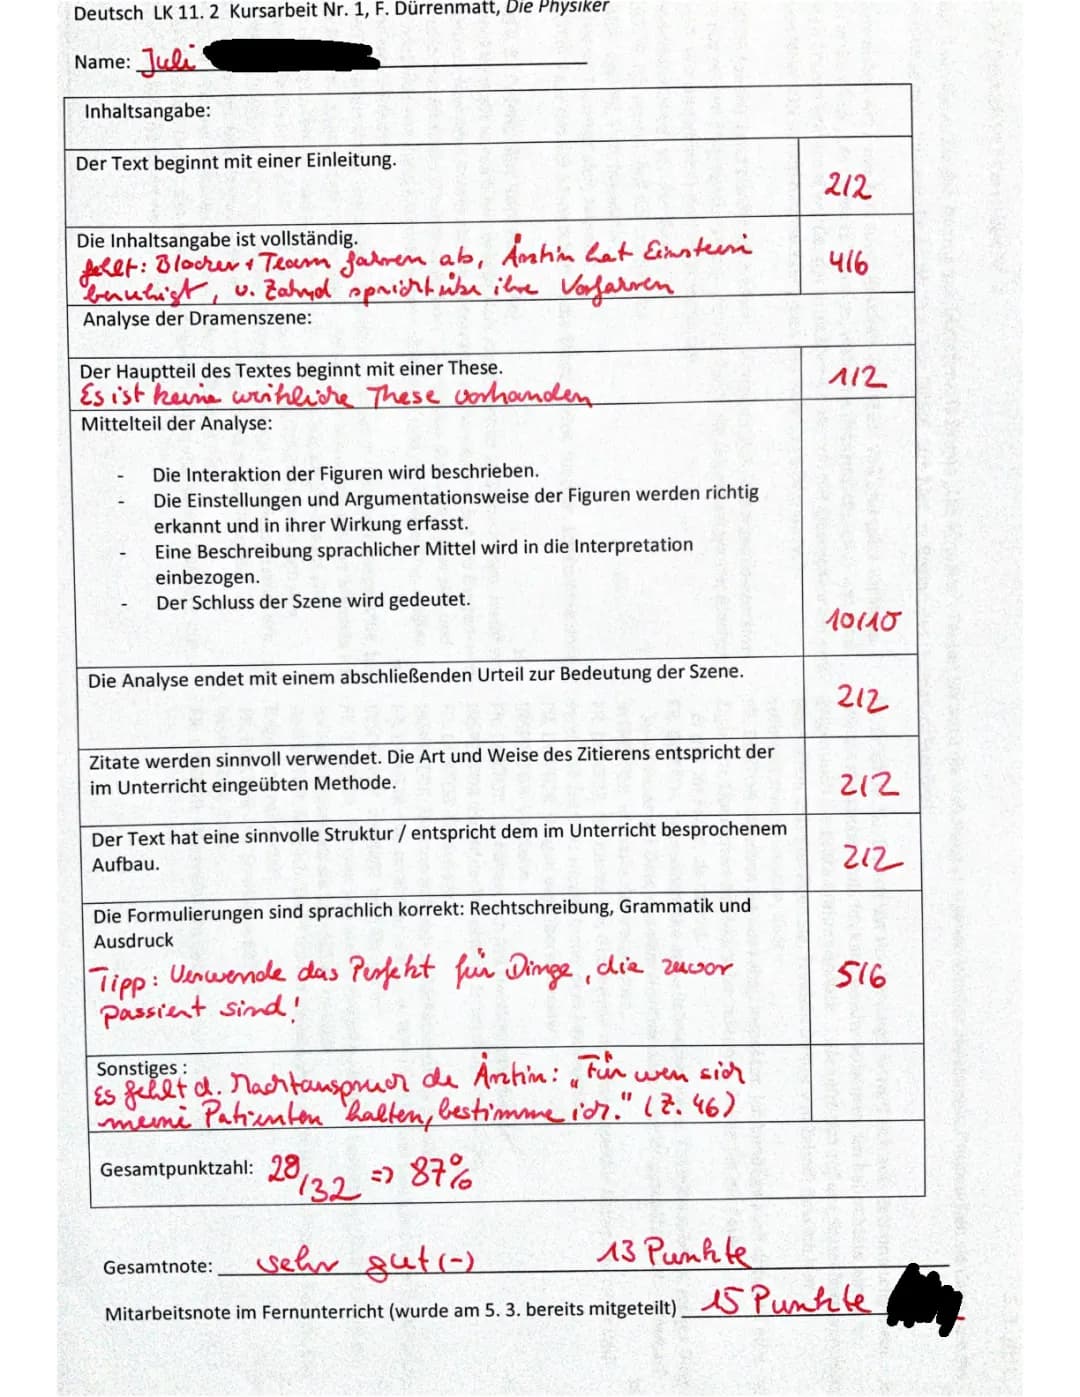 Deutsch LK 11. 2 Kursarbeit Nr. 1, F. Dürrenmatt, Die Physiker
Name: Juli
Inhaltsangabe:
Der Text beginnt mit einer Einleitung.
2/2
Die Inhaltsangabe ist vollständig.
fehlt: Blocher + Team fahren ab, Ärztin hat Einstein
beruhigt, v. Zahnd spricht über ihre Vorfahren
4/6
Analyse der Dramenszene:
Der Hauptteil des Textes beginnt mit einer These.
Es ist keine wirkliche These vorhanden
1/2
Mittelteil der Analyse:
- Die Interaktion der Figuren wird beschrieben.
- Die Einstellungen und Argumentationsweise der Figuren werden richtig
erkannt und in ihrer Wirkung erfasst.
- Eine Beschreibung sprachlicher Mittel wird in die Interpretation
einbezogen.
- Der Schluss der Szene wird gedeutet.
10/10
Die Analyse endet mit einem abschließenden Urteil zur Bedeutung der Szene.
2/2
Zitate werden sinnvoll verwendet. Die Art und Weise des Zitierens entspricht der
im Unterricht eingeübten Methode.
2/2
Der Text hat eine sinnvolle Struktur / entspricht dem im Unterricht besprochenem
Aufbau.
2/2
Die Formulierungen sind sprachlich korrekt: Rechtschreibung, Grammatik und
Ausdruck
Tipp: Verwende das Perfekt für Dinge, die zuvor
passiert sind!
5/6
Sonstiges :
Es fehlt d. Machtanspruch de Ärztin: „Für wen sich
meine Patienten halten, bestimme ich." (Z. 46)
Gesamtpunktzahl: 28/32 => 87%
Gesamtnote: sehr gut (-) 13 Punkte
Mitarbeitsnote im Fernunterricht (wurde am 5. 3. bereits mitgeteilt) 15 Punkte